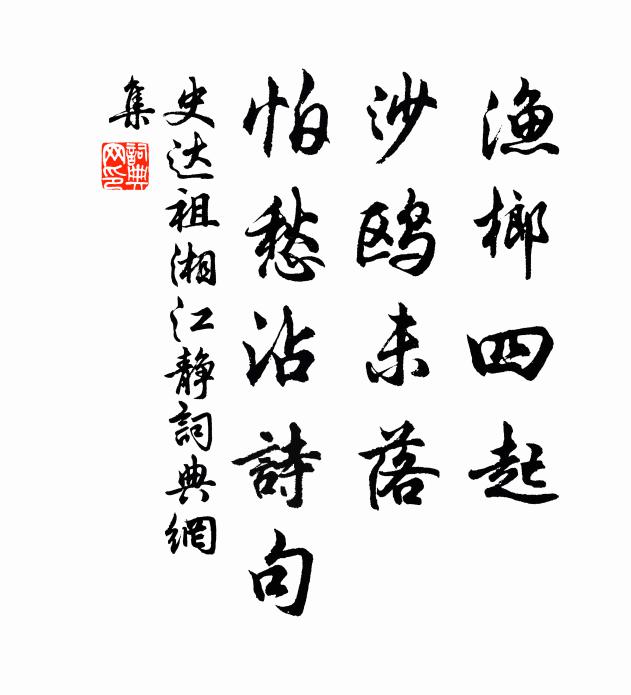 渔榔四起
沙鸥未落
怕愁沾詩句
史达祖湘江静詞典網
集
詞典网印